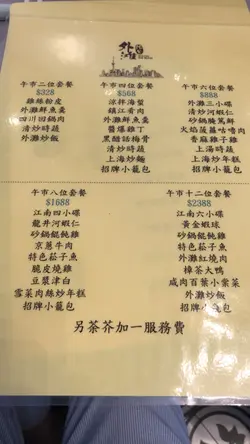 外灘
午市二位套餐
$328
雞絲粉皮
外灘鮮魚羹
四川回鍋肉
清炒時蔬
外灘炒飯
午市四位套餐
$568
涼拌海蜇
鎮江肴肉
外灘鮮魚羹
醬爆雞丁
黑醋話梅骨
清炒時蔬
上海炒麵
招牌小籠包
午市六位套餐
$888
外灘三小碟
清炒河蝦仁
砂鍋醃篤鮮
火焰菠蘿咕嚕肉
香麻雞子雞
上湯時蔬
上海炒年糕
招牌小籠包
午市八位套餐
$1688
江南四小碟
龍井河蝦仁
砂鍋餛飩雞
京蔥牛肉
特色菘子魚
脆皮燒雞
豆漿津白
雪菜肉絲炒年糕
招牌小籠包
午市十二位套餐
$2388
江南六小碟
黃金蝦球
砂鍋餛飩雞
特色菘子魚
外灘紅燒肉
樟茶大鴨
咸肉百葉小棠菜
外灘炒飯
招牌小籠包
另茶芥加一服務費